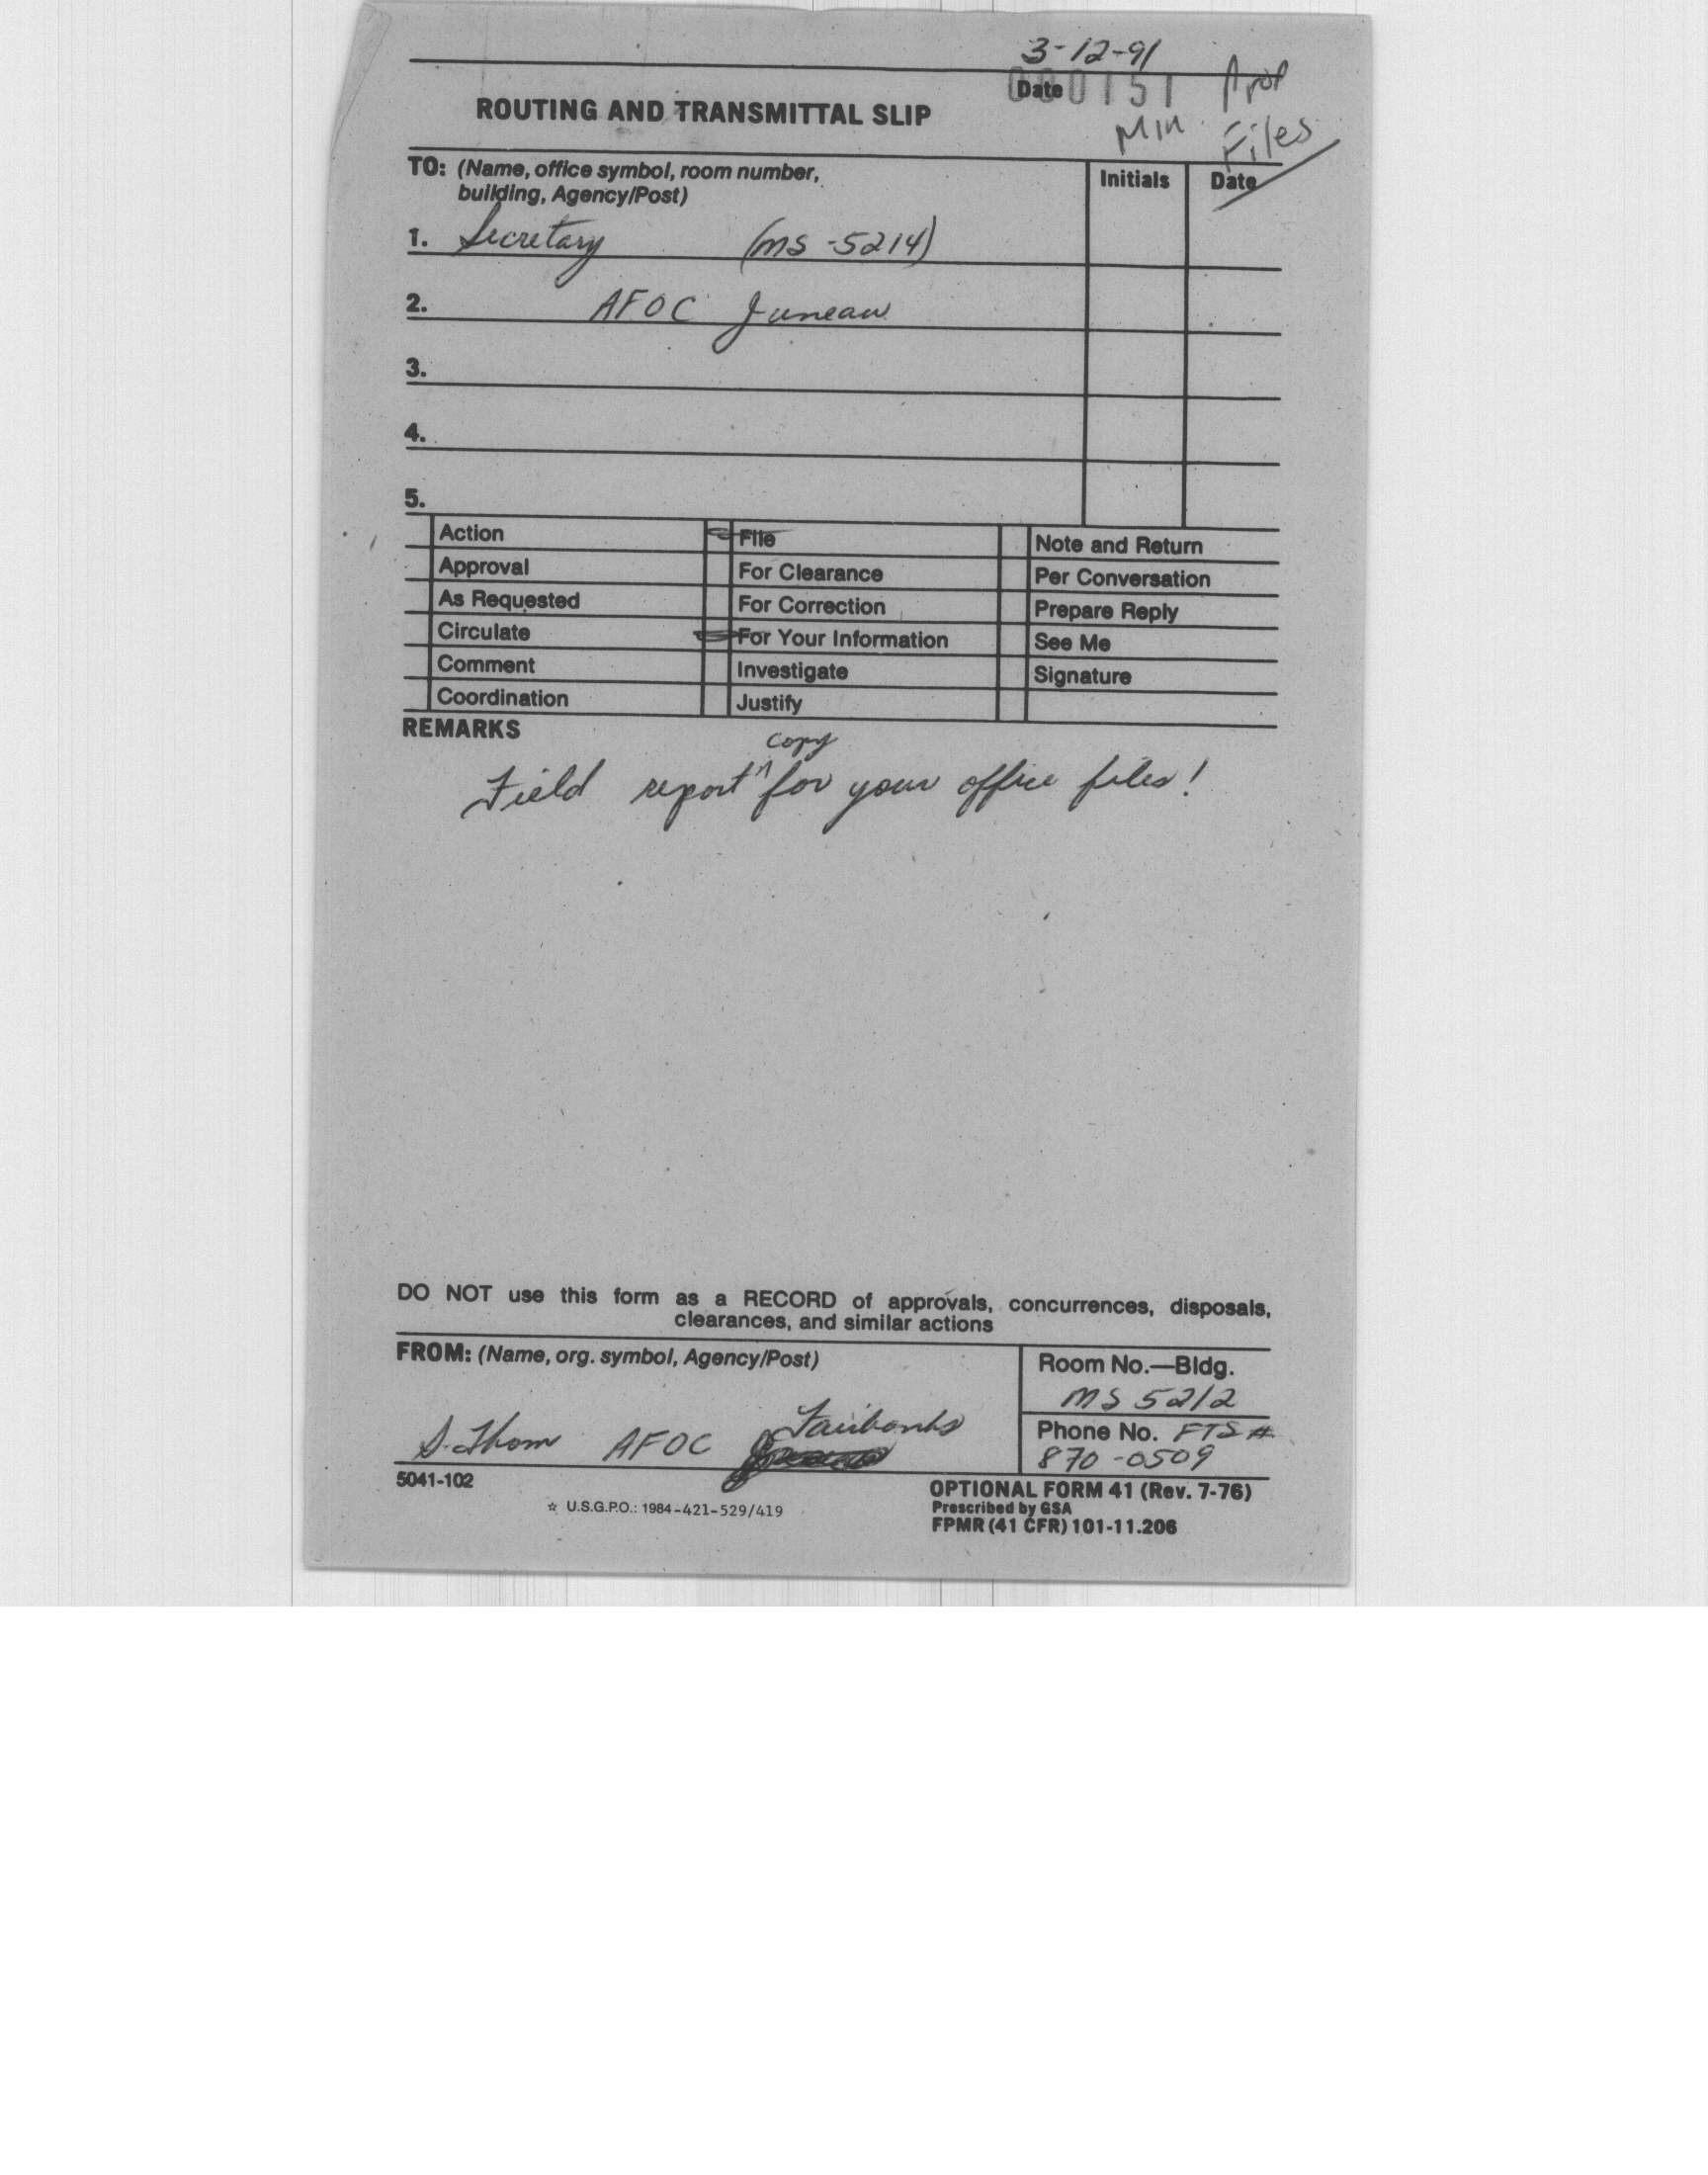 3-12-91
Date 000151 Prop
ROUTING AND TRANSMITTAL SLIP
Min Files
TO: (Name, office symbol, room number,
building, Agency/Post)
Initials Date
1. Secretary (MS-5214)
2. AFOC Juneau
3.
4.
5.
Action File Note and Return
Approval For Clearance Per Conversation
As Requested For Correction Prepare Reply
Circulate For Your Information See Me
Comment Investigate Signature
Coordination Justify
REMARKS
copy
Field report ^ for your office files!
DO NOT use this form as a RECORD of approvals, concurrences, disposals,
clearances, and similar actions
FROM: (Name, org. symbol, Agency/Post)
Room No.—Bldg.
MS 5212
S. Thom AFOC Fairbanks
Phone No. FTS #
870-0509
5041-102
OPTIONAL FORM 41 (Rev. 7-76)
☆ U.S.G.P.O.: 1984-421-529/419
Prescribed by GSA
FPMR (41 CFR) 101-11.206